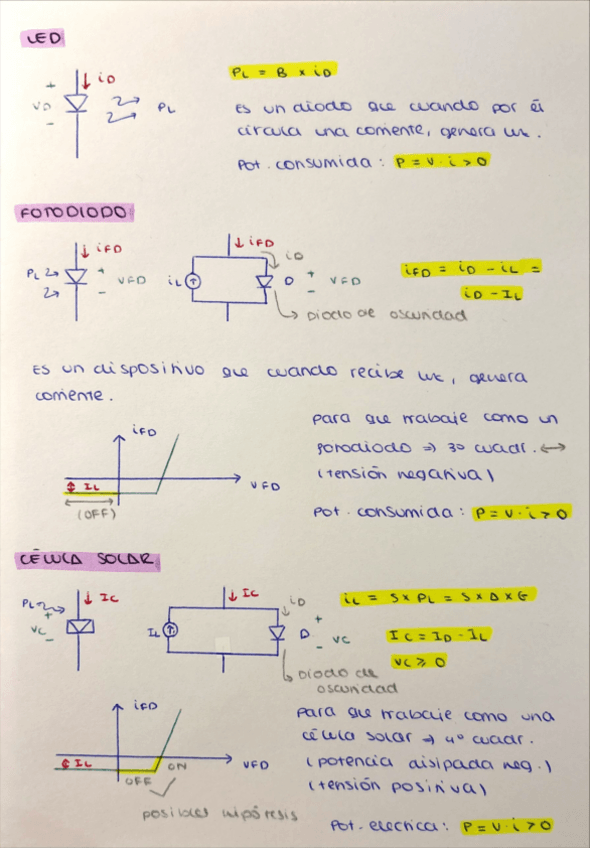 LED
+
iD
VD
-
PL
PL = B x iD
Es un diodo que cuando por él
circula una corriente, genera luz.
Pot. consumida: P = V · i > 0
FOTODIODO
iFD
PL
+
VFD
-
iFD
iD
iL
D
+
VFD
-
Diodo de oscuridad
iFD = iD - iL =
iD - IL
Es un dispositivo que cuando recibe luz, genera
corriente.
iFD
IL
VFD
(OFF)
Para que trabaje como un
fotodiodo ⇒ 3º cuadr. ↔
(tensión negativa)
Pot. consumida: P = V · i > 0
CÉLULA SOLAR
PL
IC
+
VC
-
IC
iD
IL
D
+
VC
-
Diodo de
oscuridad
iL = S x PL = S x A x G
IC = ID - IL
VC ≥ 0
iFD
IL
VFD
OFF
ON
posibles hipótesis
Para que trabaje como una
célula solar ⇒ 4º cuadr.
(potencia disipada neg.)
(tensión positiva)
Pot. electrica: P = V · i > 0